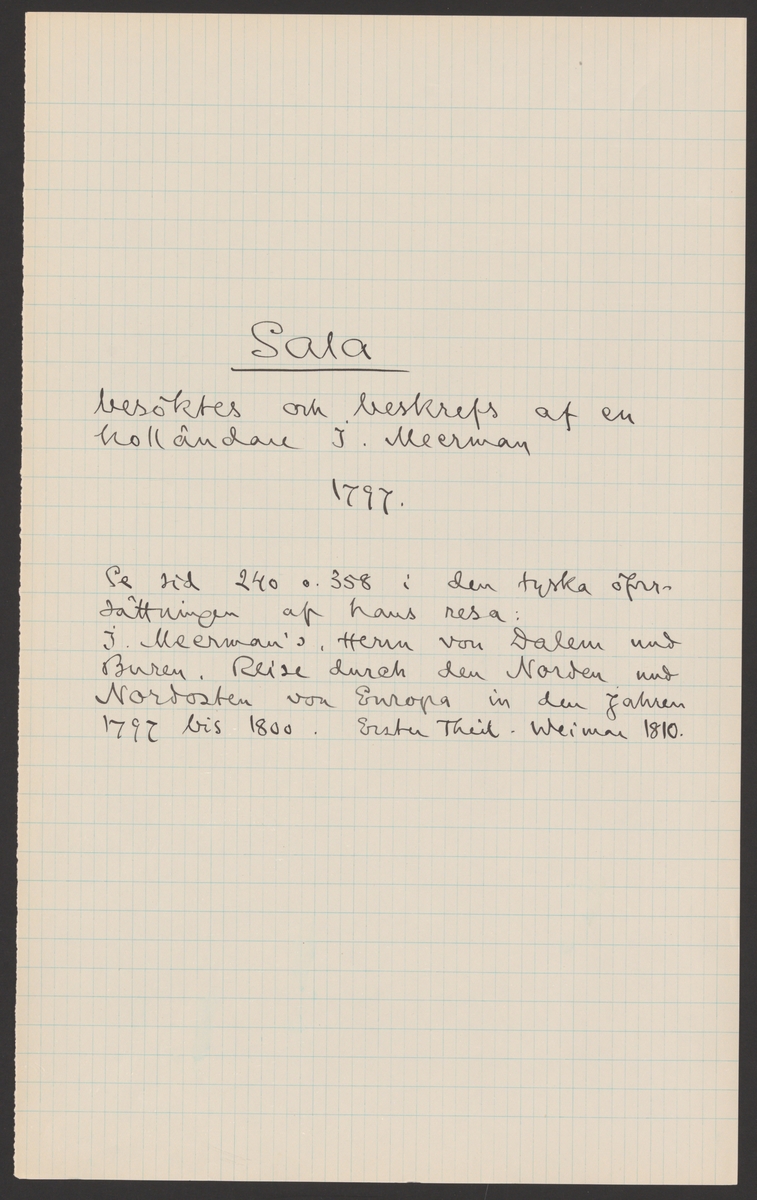 Sala
besöktes och beskrefs af en
holländare J. Meerman
1797.
Se sid 240 o. 358 i den tyska öfver-
sättningen af hans resa:
J. Meerman's, Herrn von Dalem und
Buren, Reise durch den Norden und
Nordosten von Europa in den Jahren
1797 bis 1800. Erster Theil. Weimar 1810.